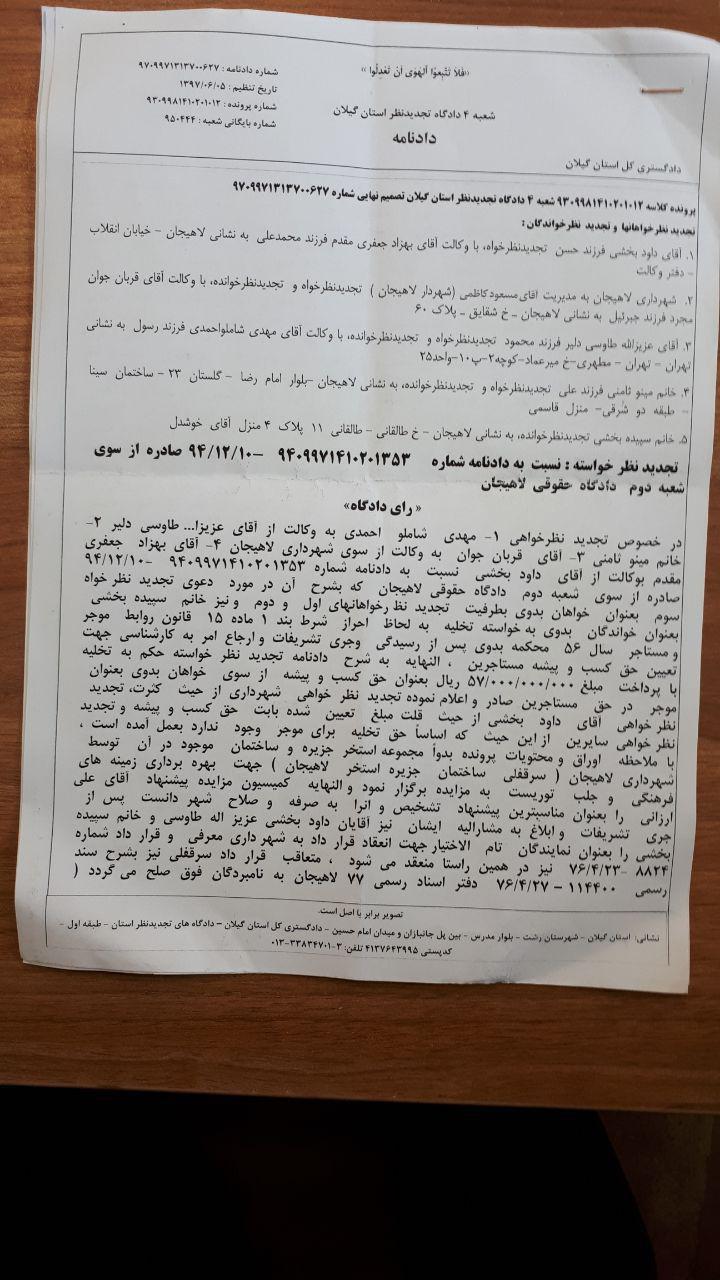 «فَلا تَتَّبِعُوا الْهَوى أَنْ تَعْدِلُوا»
شماره دادنامه : ۹۷۰۹۹۷۱۳۱۳۷۰۰۶۲۷
تاریخ تنظیم : ۱۳۹۷/۰۶/۰۵
شماره پرونده : ۹۳۰۹۹۸۱۴۱۰۲۰۱۰۱۲
شماره بایگانی شعبه : ۹۵۰۴۴۴
شعبه ۴ دادگاه تجدیدنظر استان گیلان
دادنامه
دادگستری کل استان گیلان
پرونده کلاسه ۹۳۰۹۹۸۱۴۱۰۲۰۱۰۱۲ شعبه ۴ دادگاه تجدیدنظر استان گیلان تصمیم نهایی شماره ۹۷۰۹۹۷۱۳۱۳۷۰۰۶۲۷
تجدید نظرخواهانها و تجدید نظرخواندگان :
۱. آقای داود بخشی فرزند حسن تجدیدنظرخواه، با وکالت آقای بهزاد جعفری مقدم فرزند محمدعلی به نشانی لاهیجان - خیابان انقلاب
- دفتر وکالت
۲. شهرداری لاهیجان به مدیریت آقای مسعود کاظمی (شهردار لاهیجان ) تجدیدنظرخواه و تجدیدنظرخوانده، با وکالت آقای قربان جوان
مجرد فرزند جبرئیل به نشانی لاهیجان ـ خ شقایق ـ پلاک ۶۰
۳. آقای عزیزالله طاوسی دلیر فرزند محمود تجدیدنظرخواه و تجدیدنظرخوانده، با وکالت آقای مهدی شاملواحمدی فرزند رسول به نشانی
تهران - تهران - مطهری-خ میرعماد-کوچه۲-پ۱۰-واحد۲۵
۴. خانم مینو ثامنی فرزند علی تجدیدنظرخواه و تجدیدنظرخوانده، به نشانی لاهیجان -بلوار امام رضا - گلستان ۲۳ - ساختمان سینا
- طبقه دو شرقی- منزل قاسمی
۵. خانم سپیده بخشی تجدیدنظرخوانده، به نشانی لاهیجان - خ طالقانی - طالقانی ۱۱ پلاک ۴ منزل آقای خوشدل
تجدید نظر خواسته : نسبت به دادنامه شماره ۹۴۰۹۹۷۱۴۱۰۲۰۱۳۵۳ -۹۴/۱۲/۱۰ صادره از سوی
شعبه دوم دادگاه حقوقی لاهیجان
« رای دادگاه»
در خصوص تجدید نظرخواهی ۱- مهدی شاملو احمدی به وکالت از آقای عزیزا... طاوسی دلیر ۲-
خانم مینو ثامنی ۳- آقای قربان جوان به وکالت از سوی شهرداری لاهیجان ۴- آقای بهزاد جعفری
مقدم بوکالت از آقای داود بخشی نسبت به دادنامه شماره ۹۴۰۹۹۷۱۴۱۰۲۰۱۳۵۳ -۹۴/۱۲/۱۰
صادره از سوی شعبه دوم دادگاه حقوقی لاهیجان که بشرح آن در مورد دعوی تجدید نظر خواه
سوم بعنوان خواهان بدوی بطرفیت تجدید نظرخواهانهای اول و دوم و نیز خانم سپیده بخشی
بعنوان خواندگان بدوی به خواسته تخلیه به لحاظ احراز شرط بند ۱ ماده ۱۵ قانون روابط موجر
و مستاجر سال ۵۶ محکمه بدوی پس از رسیدگی وجری تشریفات و ارجاع امر به کارشناسی جهت
تعیین حق کسب و پیشه مستاجرین ، النهایه به شرح دادنامه تجدید نظر خواسته حکم به تخلیه
با پرداخت مبلغ ۵۷/۰۰۰/۰۰۰/۰۰۰ ریال بعنوان حق کسب و پیشه از سوی خواهان بدوی بعنوان
موجر در حق مستاجرین صادر و اعلام نموده تجدید نظر خواهی شهرداری از حیث کثرت، تجدید
نظر خواهی آقای داود بخشی از حیث قلت مبلغ تعیین شده بابت حق کسب و پیشه و تجدید
نظر خواهی سایرین از این حیث که اساساً حق تخلیه برای موجر وجود ندارد بعمل آمده است ،
با ملاحظه اوراق و محتویات پرونده بدواً مجموعه استخر جزیره و ساختمان موجود در آن توسط
شهرداری لاهیجان ( سرقفلی ساختمان جزیره استخر لاهیجان ) جهت بهره برداری زمینه های
فرهنگی و جلب توریست به مزایده برگزار نمود و النهایه کمیسیون مزایده پیشنهاد آقای علی
ارزانی را بعنوان مناسبترین پیشنهاد تشخیص و انرا به صرفه و صلاح شهر دانست پس از
جری تشریفات و ابلاغ به مشارالیه ایشان نیز آقایان داود بخشی عزیز اله طاوسی و خانم سپیده
بخشی را بعنوان نمایندگان تام الاختیار جهت انعقاد قرار داد به شهرداری معرفی و قرار داد شماره
۸۸۲۴ -۷۶/۴/۲۳ نیز در همین راستا منعقد می شود ، متعاقب قرار داد سرقفلی نیز بشرح سند
رسمی ۱۱۴۴۰۰ - ۷۶/۴/۲۷ دفتر اسناد رسمی ۷۷ لاهیجان به نامبردگان فوق صلح می گردد (
تصویر برابر با اصل است.
نشانی: استان گیلان - شهرستان رشت - بلوار مدرس - بین پل جانبازان و میدان امام حسین - دادگستری کل استان گیلان - دادگاه های تجدیدنظر استان - طبقه اول -
کدپستی ۴۱۳۷۶۴۳۹۹۵ تلفن: ۲-۳۳۸۳۴۷۰۱-۰۱۳